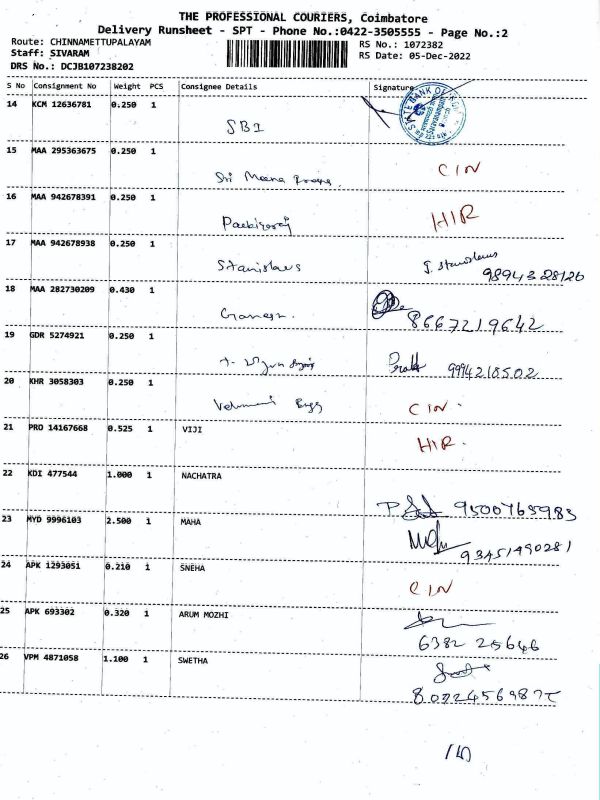 THE PROFESSIONAL COURIERS, Coimbatore
Delivery Runsheet - SPT - Phone No.:0422-3505555 - Page No.:2
Route: CHINNAMETTUPALAYAM
RS No.: 1072382
Staff: SIVARAM
RS Date: 05-Dec-2022
DRS No.: DCJB107238202
S No Consignment No Weight PCS Consignee Details Signature
14 KCM 12636781 0.250 1
SBI
STATE BANK OF
15 MAA 295363675 0.250 1
Sri Meena
CIN
16 MAA 942678391 0.250 1
HIR
17 MAA 942678938 0.250 1
Stanislaus
J. Stanislaus
9894328126
18 MAA 282730209 0.430 1
Ganesh.
8667219642
19 GDR 5274921 0.250 1
9994218502
20 KHR 3058303 0.250 1
CIN.
21 PRO 14167668 0.525 1 VIJI
HIR.
22 KDI 477544 1.000 1 NACHATRA
9500765983
23 MYD 9996103 2.500 1 MAHA
9345190281
24 APK 1293051 0.210 1 SNEHA
CIN
25 APK 693302 0.320 1 ARUM MOZHI
6382 25646
26 VPM 4871058 1.100 1 SWETHA